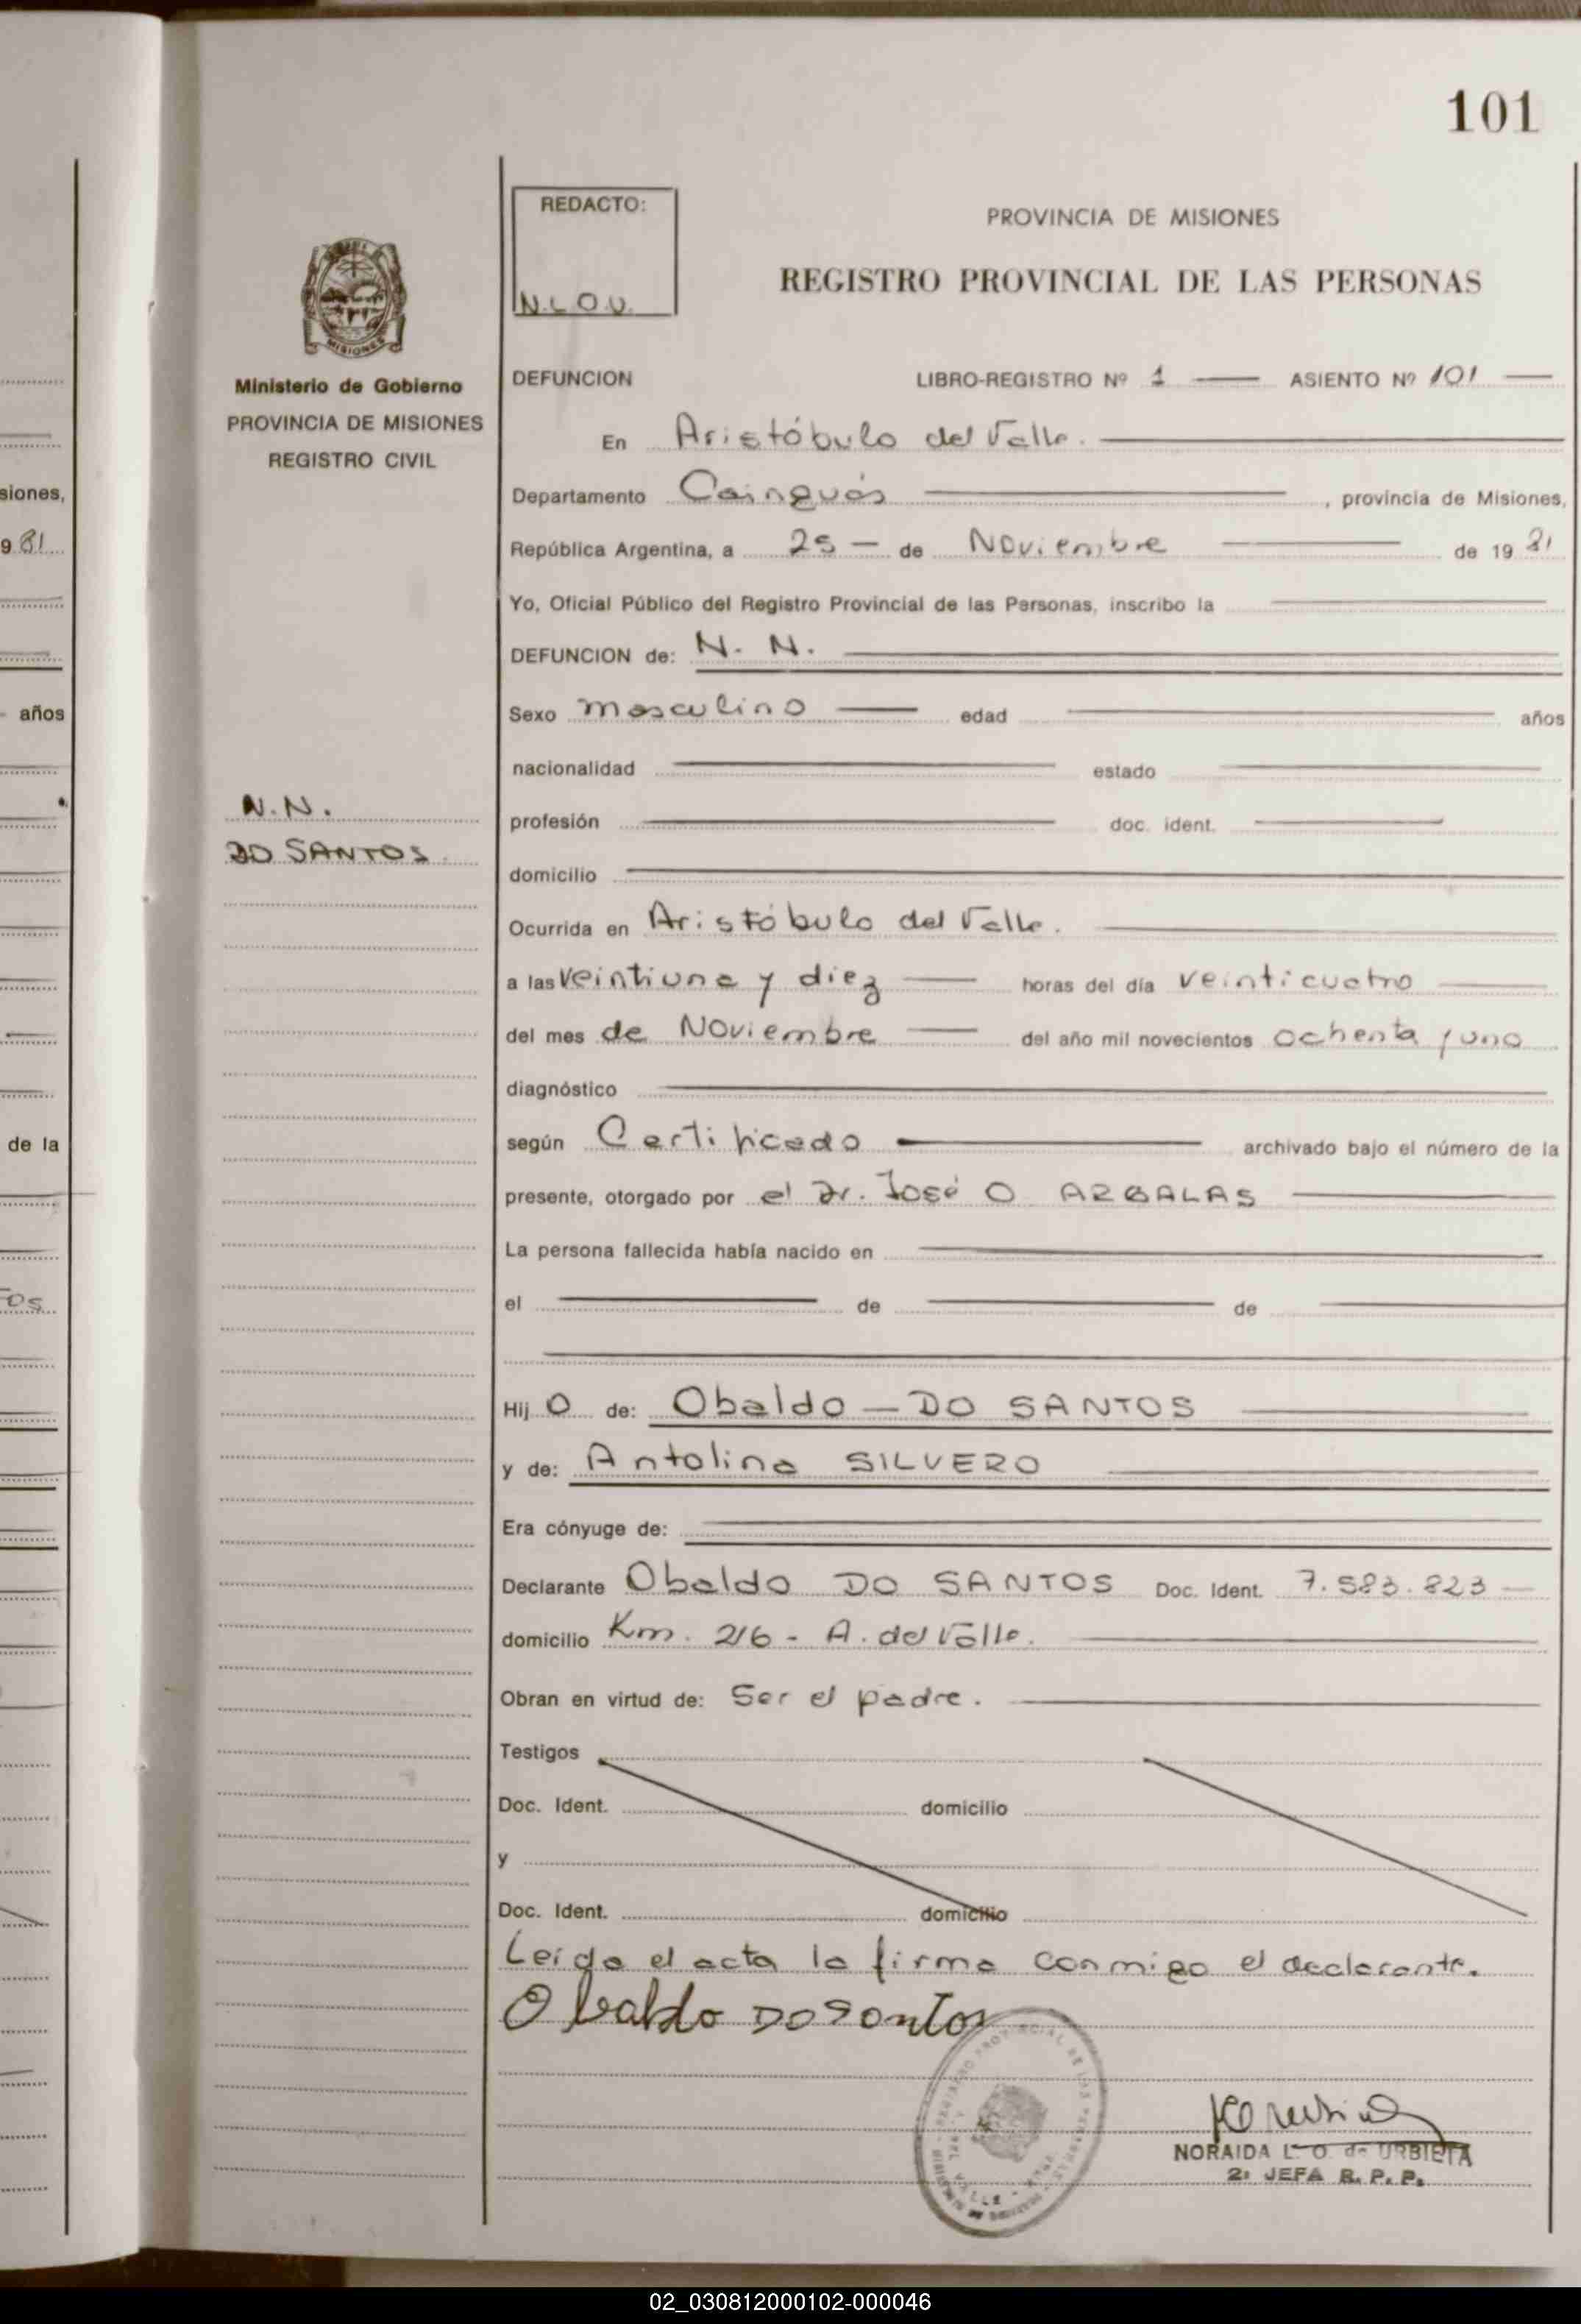 101
REDACTO:
N.L.O.U.
PROVINCIA DE MISIONES
REGISTRO PROVINCIAL DE LAS PERSONAS
MISIONES
Ministerio de Gobierno
PROVINCIA DE MISIONES
REGISTRO CIVIL
N.N.
DO SANTOS
DEFUNCION LIBRO-REGISTRO Nº 1 ASIENTO Nº 101
En Aristóbulo del Valle.
Departamento Cainguás, provincia de Misiones,
República Argentina, a 25 de Noviembre de 1981
Yo, Oficial Público del Registro Provincial de las Personas, inscribo la
DEFUNCION de: N. N.
Sexo masculino edad años
nacionalidad estado
profesión doc. ident.
domicilio
Ocurrida en Aristóbulo del Valle.
a las veintiuna y diez horas del día veinticuatro
del mes de Noviembre del año mil novecientos ochenta y uno
diagnóstico
según Certificado archivado bajo el número de la
presente, otorgado por el Dr. José O ARBALAS
La persona fallecida había nacido en
el de de
Hij o de: Obaldo - DO SANTOS
y de: Antolina SILVERO
Era cónyuge de:
Declarante Obaldo DO SANTOS Doc. Ident. 7.583.823
domicilio Km. 216 - A. del Valle.
Obran en virtud de: Ser el padre.
Testigos
Doc. Ident. domicilio
y
Doc. Ident. domicilio
Leída el acta la firma conmigo el declarante.
Obaldo DOSontos
NORAIDA L. O. de URBIETA
2ª JEFA R. P. P.
siones,
981
años
de la
TOS
02_030812000102-000046